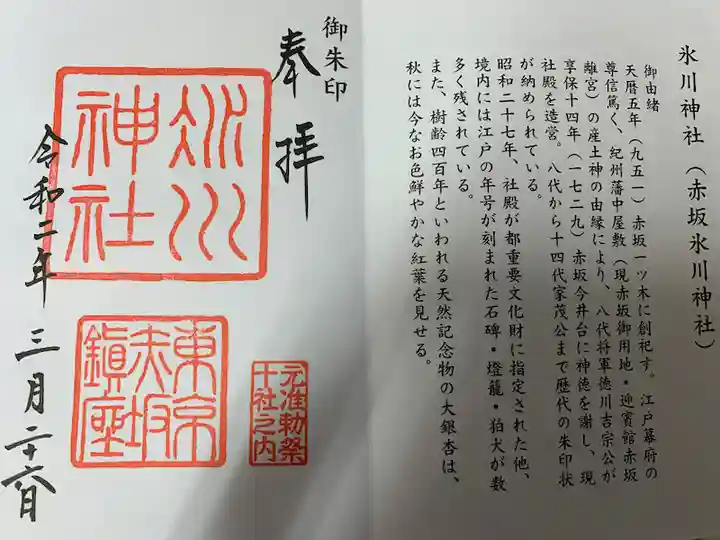 氷川神社(赤坂氷川神社)
御由緒
天暦五年(九五一)赤坂一ツ木に創祀す。江戸幕府の
尊信篤く、紀州藩中屋敷(現赤坂御用地・迎賓館赤坂
離宮)の産土神の由縁により、八代将軍徳川吉宗公が
享保十四年(一七二九)赤坂今井台に神徳を謝し、現
社殿を造営。八代から十四代家茂公まで歴代の朱印状
が納められている。
昭和二十七年、社殿が都重要文化財に指定された他、
境内には江戸の年号が刻まれた石碑・燈籠・狛犬が数
多く残されている。
また、樹齢四百年といわれる天然記念物の大銀杏は、
秋には今なお色鮮やかな紅葉を見せる。
御朱印
奉拝
氷川
神社
東京
赤坂
鎮座
元准勅祭
十社之内
令和二年 三月二十六日